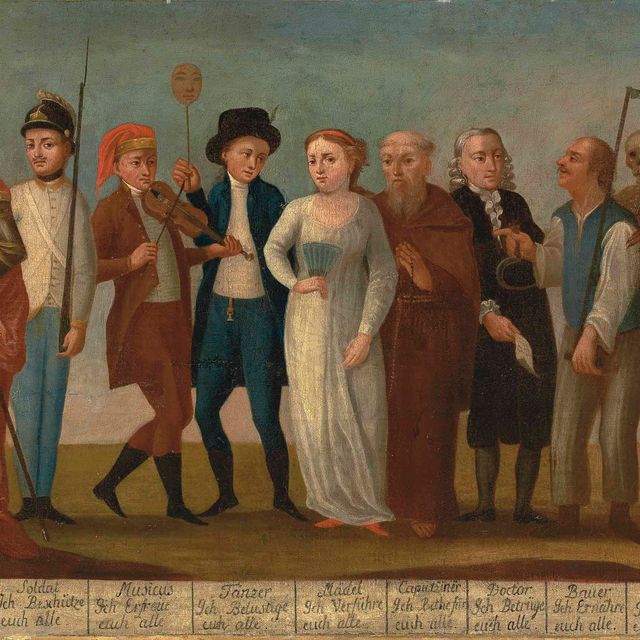 Soldat
Ich Beschütze
euch alle
Musicus
Ich Erfreue
euch alle
Tänzer
Ich Belustige
euch alle
Mädel
Ich Verführe
euch alle.
Capuziner
Ich
euch alle.
Doctor
Ich Betrüge
euch alle.
Bauer
Ich Ernähre
euch alle.